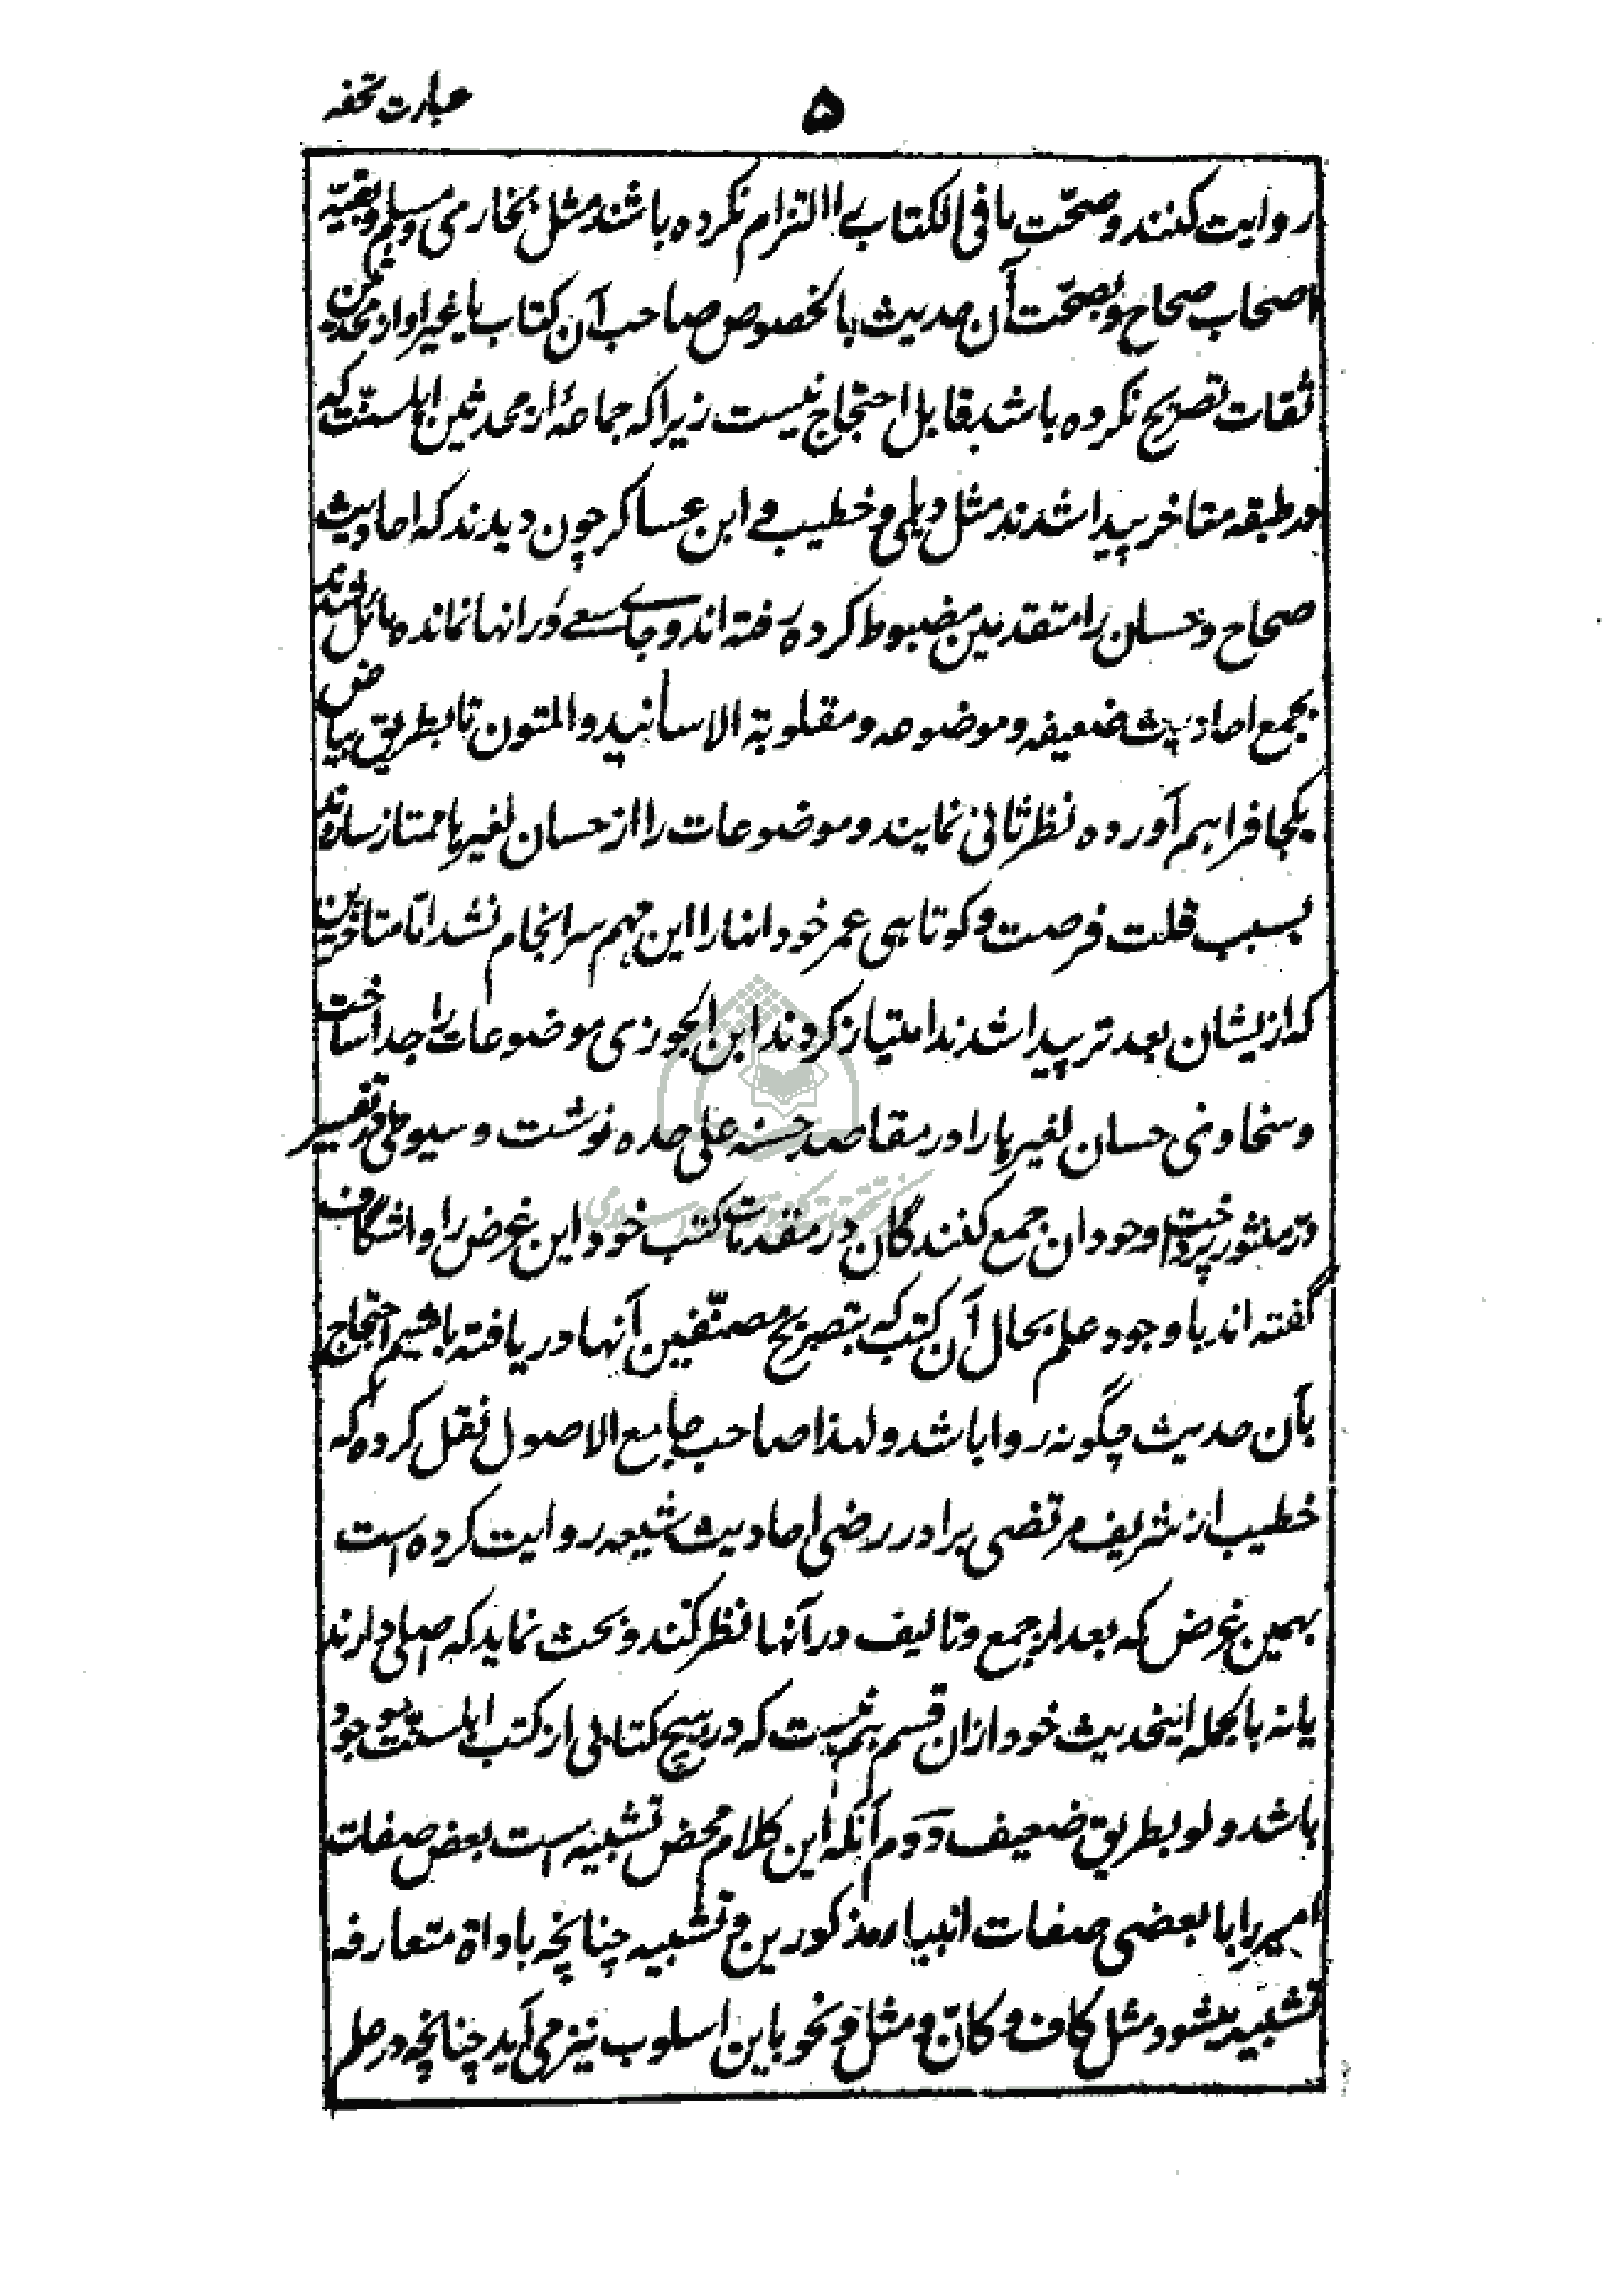 عبارت تحفه
۵
روایت کنند و صحّت ما فی الکتاب را التزام نکرده باشند مثل بخاری و مسلم و بقیّه
اصحاب صحاح و بصحّت آن حدیث بالخصوص صاحب آن کتاب یا غیر او از محدثین
ثقات تصریح نکرده باشد قابل احتجاج نیست زیرا که جماعهٔ از محدثین اهلسنّت که
در طبقه متاخر پیدا شدند مثل دیلمی و خطیب و ابن عساکر چون دیدند که احادیث
صحاح و حسان را متقدمین مضبوط کرده رفته اند و جای سعی در انها نمانده مائل شدند
بجمع احادیث ضعیفه و موضوعه و مقلوبة الاسانید و المتون تا بطریق بیاض
یکجا فراهم آورده نظر ثانی نمایند و موضوعات را از حسان لغیرها ممتاز سازند
بسبب قلت فرصت و کوتاهی عمر خود انها را این مهم سرانجام نشد امّا متاخرین
که از یشان بعد تر پیدا شدند امتیاز کردند ابن الجوزی موضوعات را جدا ساخت
و سخاوی حسان لغیرها را در مقاصد حسنه علی حده نوشت و سیوطی در تفسیر
درّ منثور پرداخت و خود ان جمع کنندگان در مقدمات کتب خود این غرض را واشگاف
گفته اند با وجود علم بحال آن کتب که بتصریح مصنّفین آنها دریافته باشیم احتجاج
بآن حدیث چگونه روا باشد و لهذا صاحب جامع الاصول نقل کرده که
خطیب از شریف مرتضی برادر رضی احادیث شیعه روایت کرده است
بهمین غرض که بعد از جمع و تالیف در آنها نظر کند و بحث نماید که اصلی دارند
یا نه بالجمله اینحدیث خود ازان قسم هم نیست که در هیچ کتابی از کتب اهلسنّت موجود
باشد و لو بطریق ضعیف دوم آنکه این کلام محض تشبیه است بعض صفات
امیر را با بعضی صفات انبیاء مذکورین و تشبیه چنانچه باداة متعارفه
تشبیه میشود مثل کاف و کانّ و مثل و نحو باین اسلوب نیز می آید چنانچه در علم